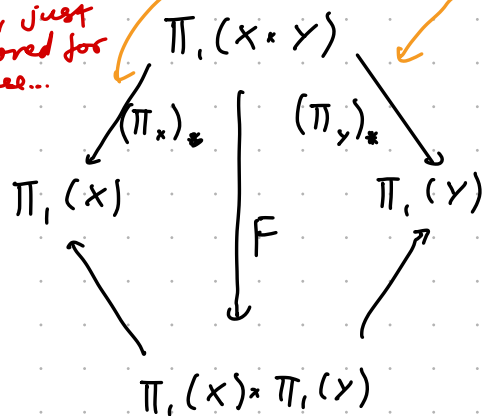 just
for
Π₁(X × Y)
(π_x)_* (π_y)_*
Π₁(X) Π₁(Y)
F
Π₁(X) × Π₁(Y)